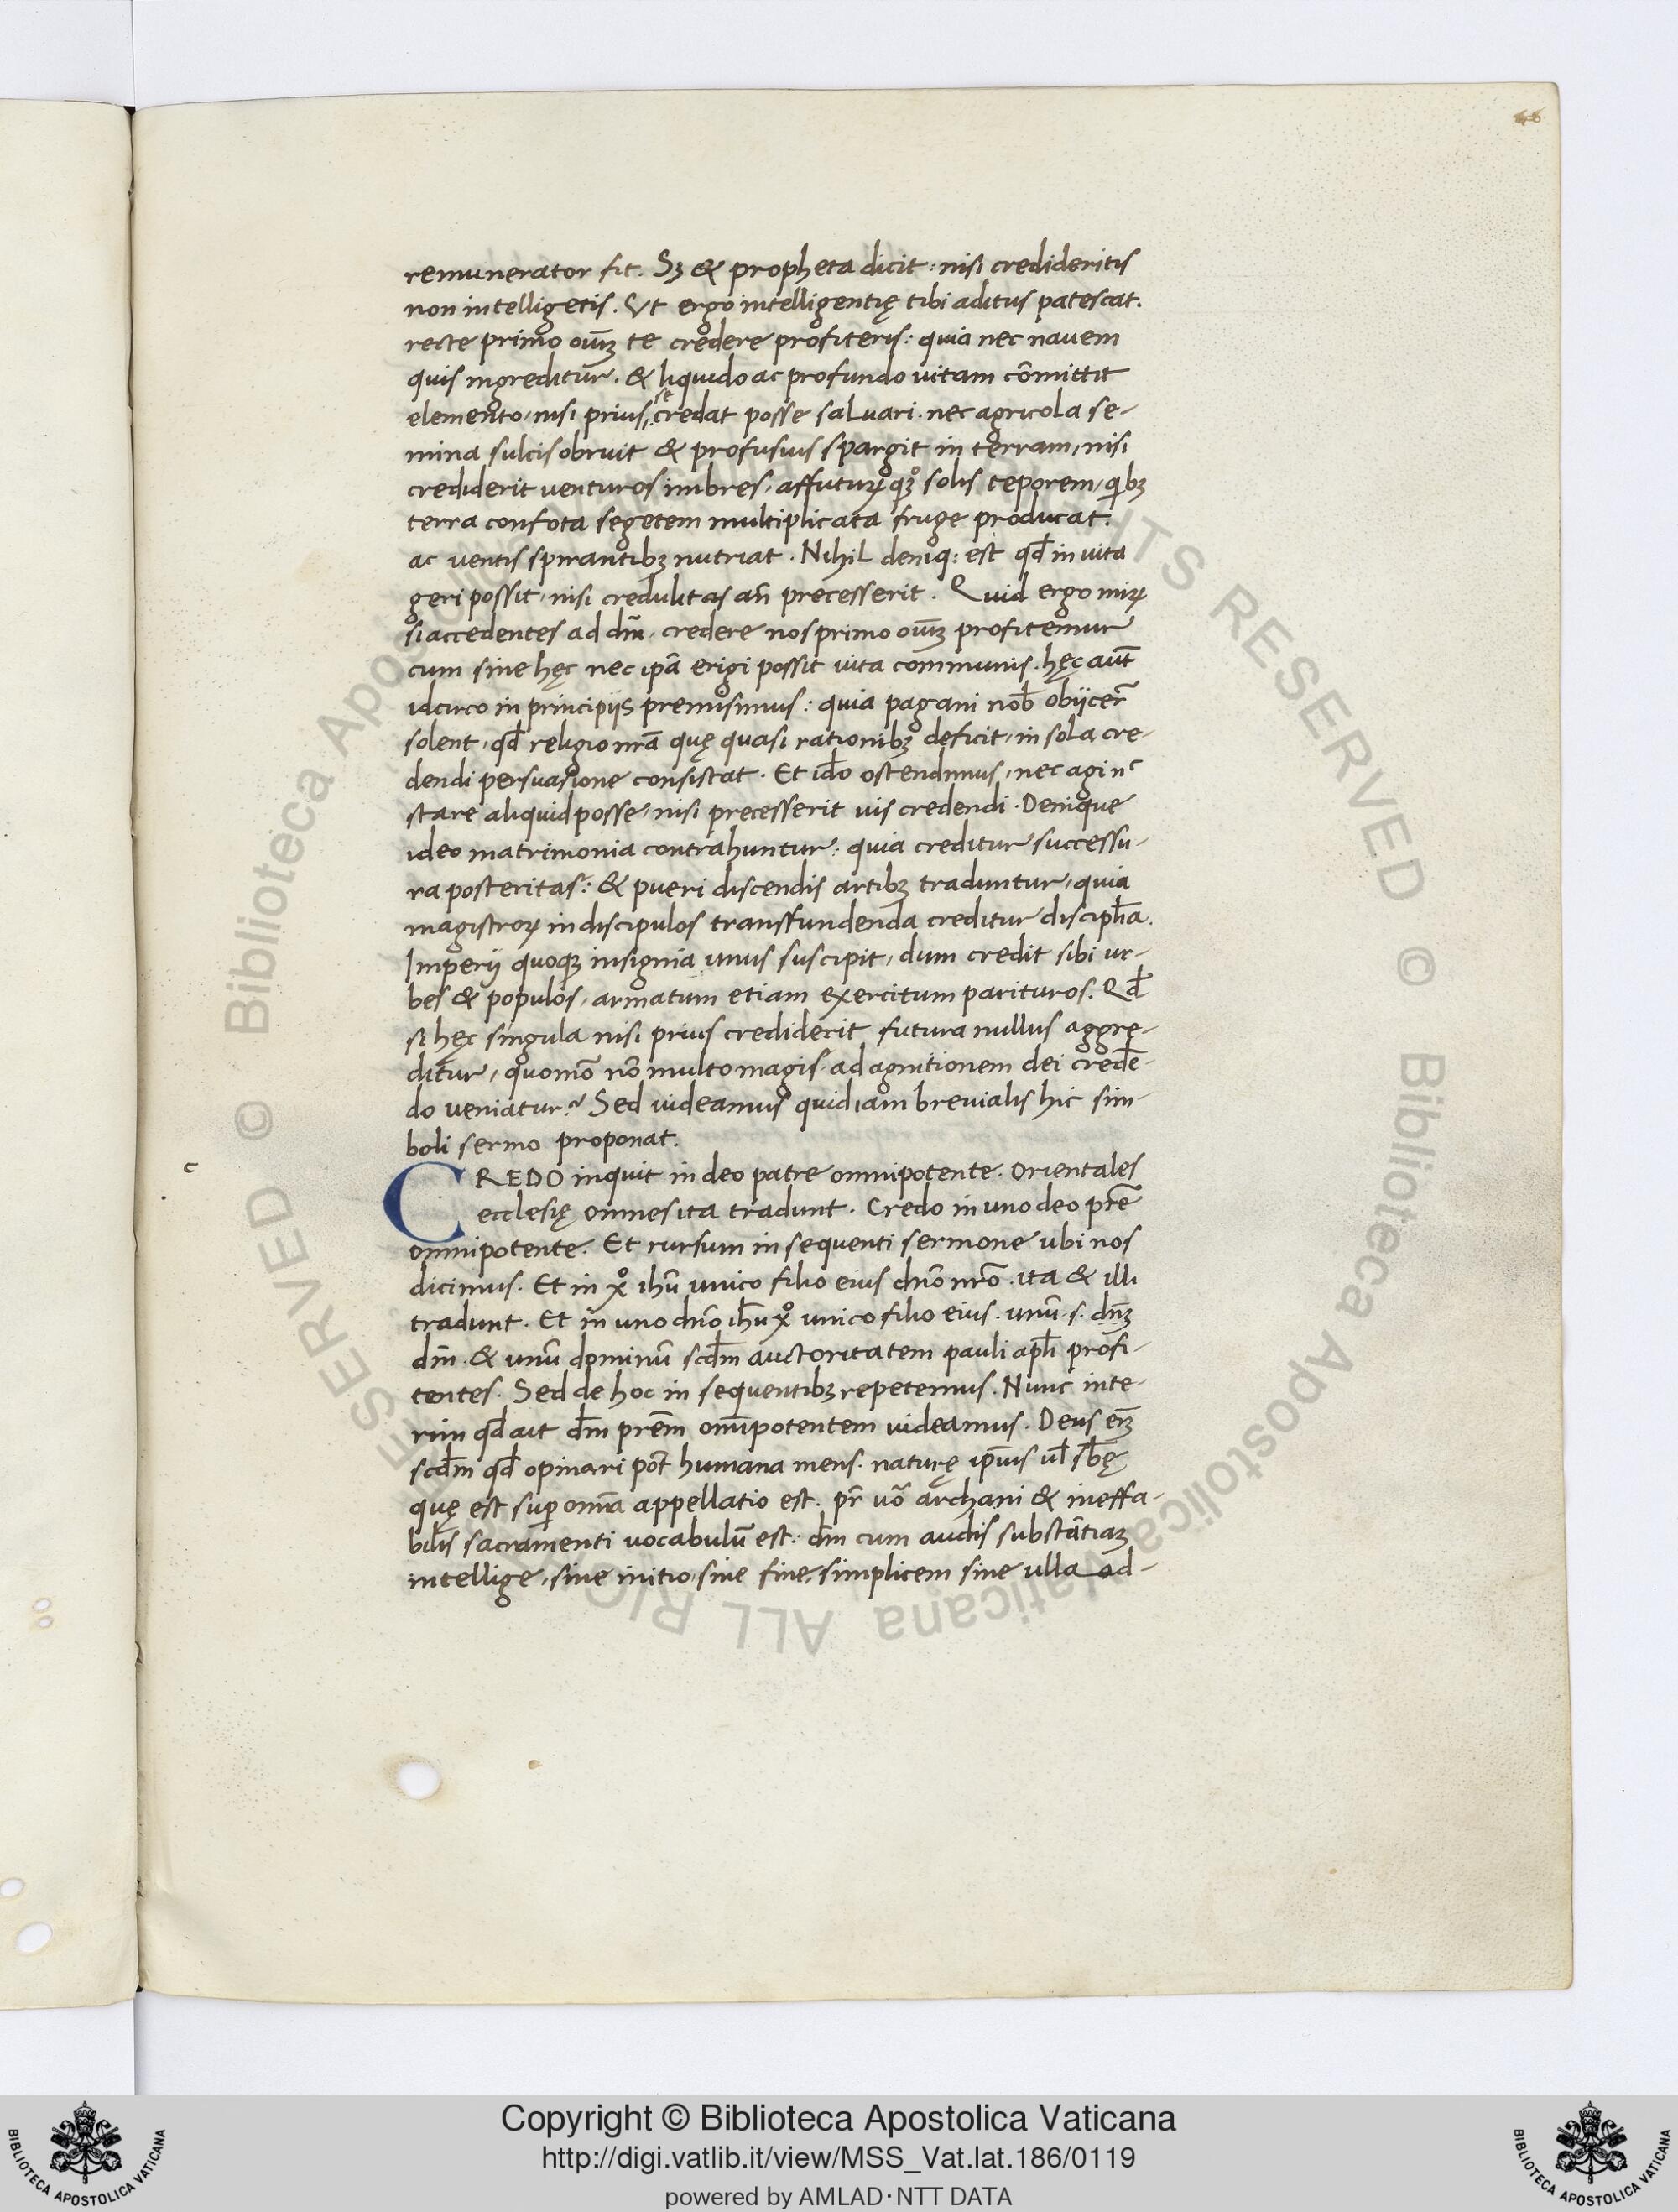 46
remunerator fit. Sꝫ & propheta dicit: nisi credideritis
non intelligetis. Vt ergo intelligentię tibi aditus patescat.
recte primo om̄ıꝫ te credere profiteris: quia nec nauem
quis ingreditur. & liquido ac profundo uitam cōmittit
se
elemento, nisi prius credat posse saluari. nec agricola se-
mina sulcis obruit & profusius spargit in terram, nisi
crediderit uenturos imbres, affuturꝝ qꝫ solis teporem, qibꝫ
terra confota segetem multiplicata fruge producat.
ac uentis spirantibꝫ nutriat. Nihil deniq: est qđ in uita
geri possit, nisi credulitas an̄ precesserit. Quid ergo mirꝝ
si accedentes ad dm̄, credere nos primo om̄ıꝫ profitemur
cum sine hęc nec ip̄a erigi possit uita communis. hęc aut̄
idcirco in principijs premisimus: quia pagani nob̄ obijcer̄
solent, qđ religio nr̄a quę quasi rationibꝫ deficit, in sola cre-
dendi persuasione consistat. Et iđo ostendimus, nec agi nc
stare aliquid posse, nisi precesserit uis credendi. Denique
ideo matrimonia contrahuntur: quia creditur successu-
ra posteritas: & pueri discendis artibꝫ traduntur, quia
magistroꝝ in discipulos transfundenda creditur discipl̄ıa.
Imperij quoqꝫ insignia unus suscipit, dum credit sibi ur-
bes & populos, armatum etiam exercitum parituros. Qđ
si hęc singula nisi prius crediderit futura nullus aggre-
ditur, quomō nō multo magis ad agnitionem dei credē-
do ueniatur? Sed uideamus quid iam breuialis hic sim-
boli sermo proponat.
c
CREDO inquit in deo patre omnipotente. Orientales
ecclesię omnes ita tradunt. Credo in uno deo pr̄e
omnipotente. Et rursum in sequenti sermone ubi nos
dicimus. Et in xº ihū unico filio eius dn̄o nr̄o. ita & illi
tradunt. Et in uno dn̄o ih̄u xº unico filio eius. unū .s. dn̄ꝫ
dm̄. & unū dominū scđm auctoritatem pauli apl̄i profi-
tentes. Sed de hoc in sequentibꝫ repetemus. Nunc inte-
rim qđ ait dm̄ pr̄em om̄ıpotentem uideamus. Deus eıꝫ
scđm qđ opinari pōt humana mens. naturę ip̄ius ul̄ sb̄ę
quę est sup om̄ıa appellatio est. pr̄ uō archani & ineffa-
bil̄is sacramenti vocabulū est: dm̄ cum audis substātiaꝫ
intellige, sine initio, sine fine, simplicem sine ulla ad-
© Biblioteca Apostolica Vaticana ALL RIGHTS RESERVED
Copyright © Biblioteca Apostolica Vaticana
http://digi.vatlib.it/view/MSS_Vat.lat.186/0119
powered by AMLAD·NTT DATA
BIBLIOTECA APOSTOLICA VATICANA
BIBLIOTECA APOSTOLICA VATICANA